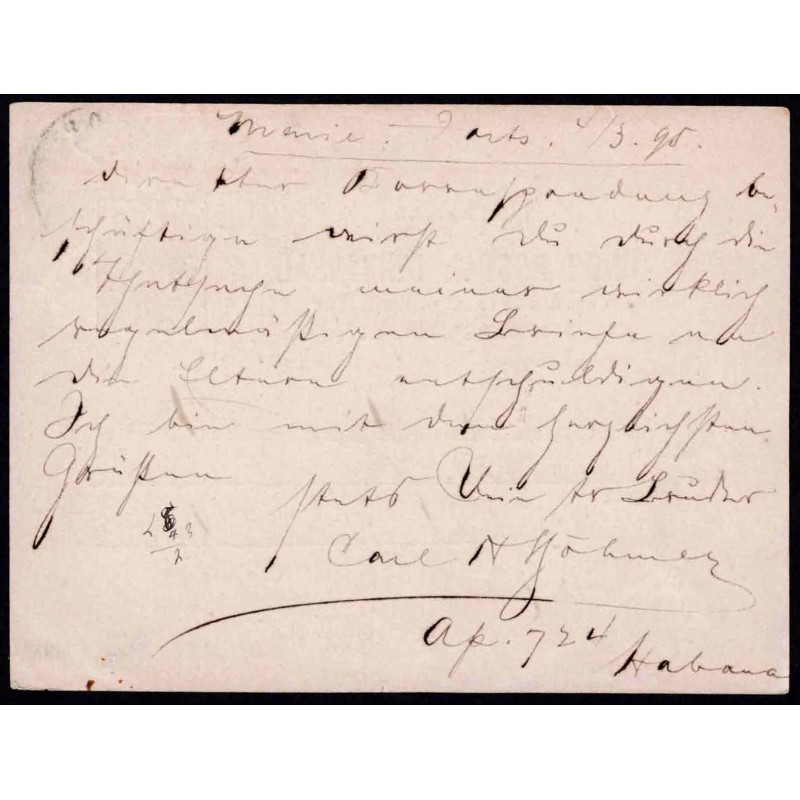 Marie. Forts. 4/3.95.
direkter Korrespondenz be-
schäftigen wirst Du durch die
Thatsache meiner wirklich
regelmäßigen Briefe an
die Eltern entschuldigen.
Ich bin mit den herzlichsten
Grüßen
stets Dein tr Bruder
Carl H
Ap. 724
Habana